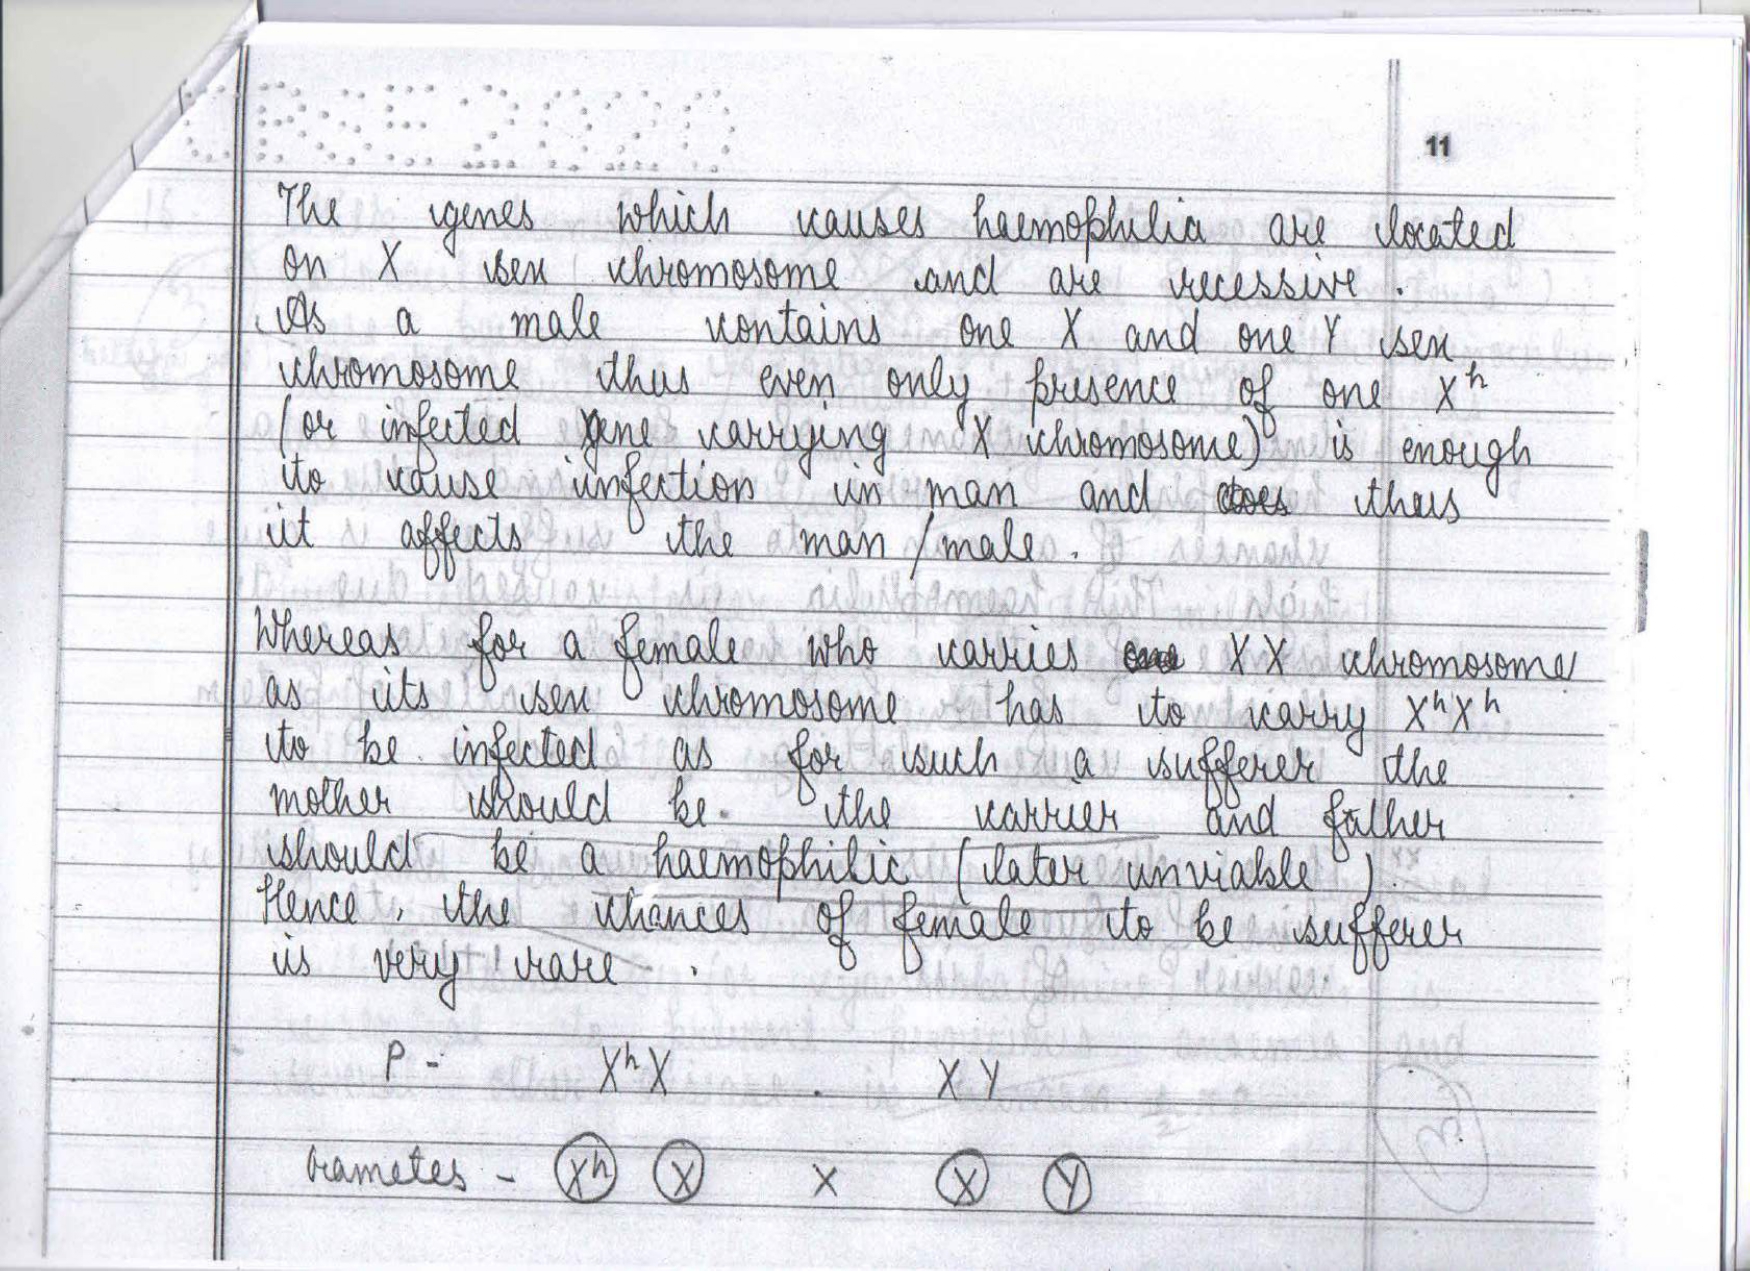 CBSE 2020
11
The genes which causes haemophilia are located
on X sex chromosome and are recessive.
As a male contains one X and one Y sex
chromosome thus even only presence of one Xʰ
(or infected gene carrying X chromosome) is enough
to cause infection in man and does thus
it affects the man/male.
Whereas for a female who carries one XX chromosome
as its sex chromosome has to carry XʰXʰ
to be infected as for such a sufferer the
mother should be the carrier and father
should be a haemophilic (later unviable)
Hence, the chances of female to be sufferer
is very rare.
P - XʰX . XY
Gametes - Xʰ X x X Y